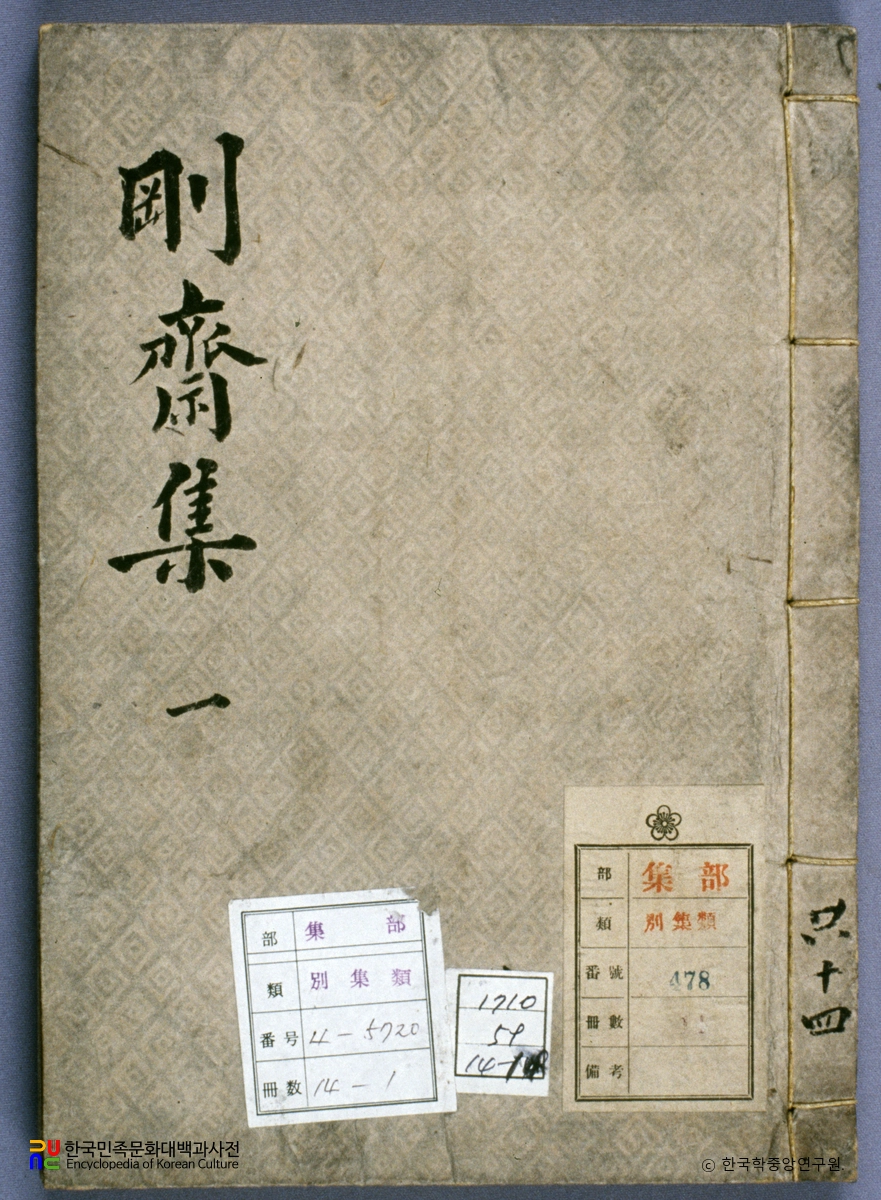 剛齋集 一
共十四
部 集部
類 別集類
番号 4-5720
冊数 14-1
1710
14-1
部 集部
類 別集類
番號 478
冊數
備考
한국민족문화대백과사전
Encyclopedia of Korean Culture
ⓒ 한국학중앙연구원